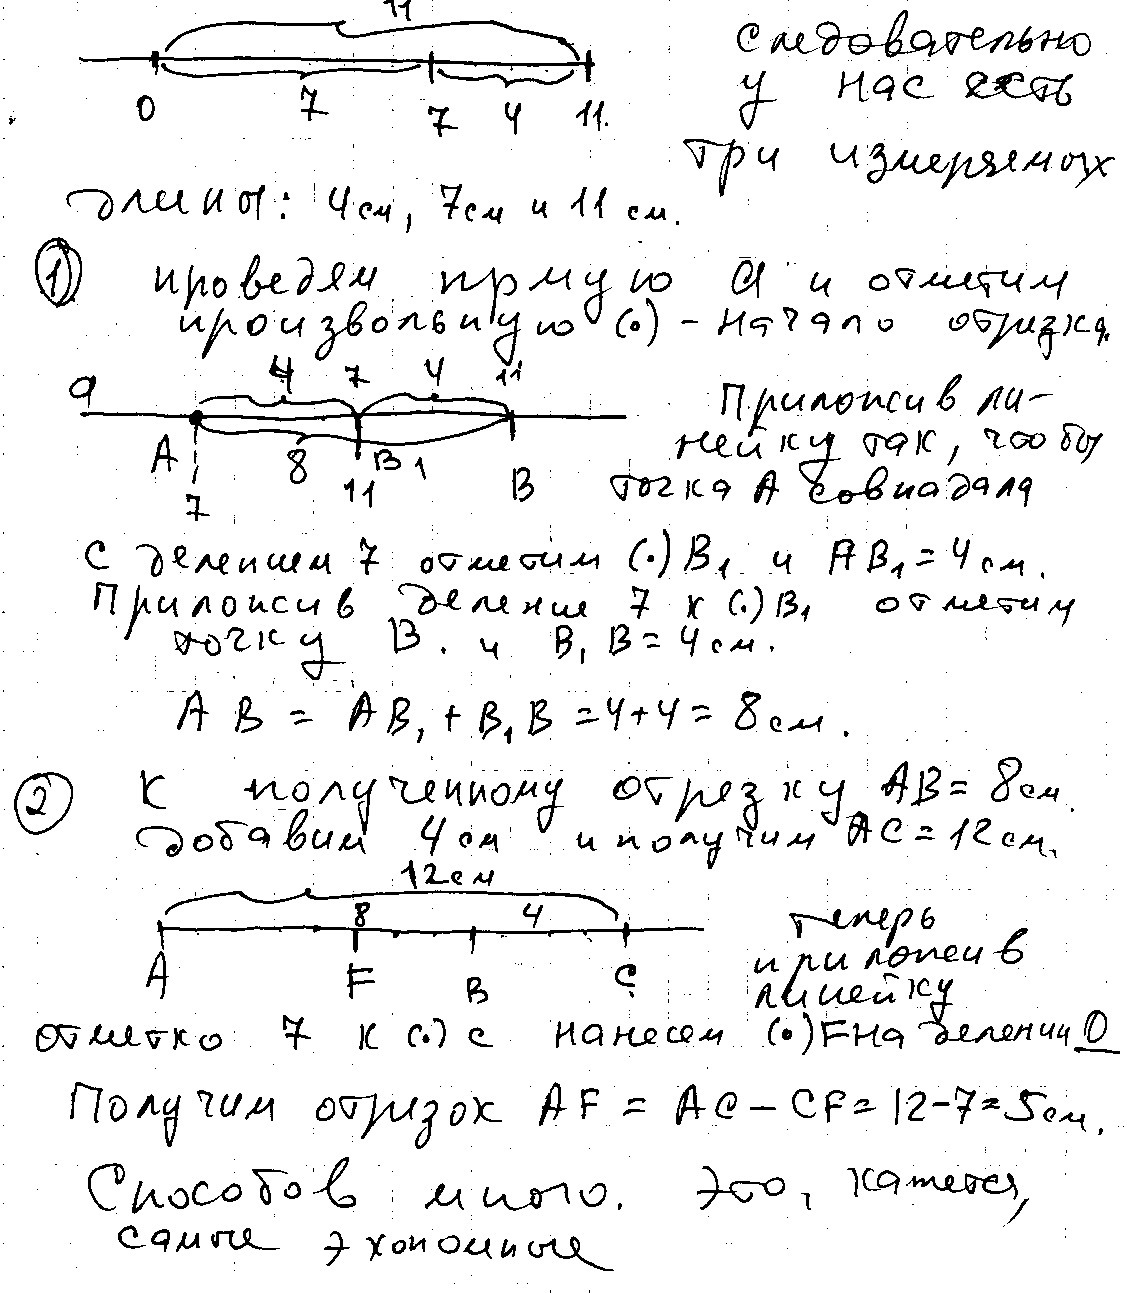 11
Следовательно
0 7 7 4 11.
у нас есть
три измеряемых
длины: 4см, 7см и 11 см.
1 проведём прмую a и отметим
произвольную (·) - начало отрезка.
a 4 7 4 11
Приложив ли-
A 8 B1 B
нейку так, чтобы
7 11
точка A совпадала
с делением 7 отметим (·) B1 и AB1 = 4 см.
Приложив деление 7 к (·) B1 отметим
точку B. и B1B = 4 см.
AB = AB1 + B1B = 4+4 = 8 см.
2 К полученному отрезку AB = 8 см.
добавим 4 см и получим AC = 12 см.
12 см
8 4
теперь
A F B C
приложив
линейку
отметко 7 к (·) C нанесем (·) F на делении 0
Получим отрезок AF = AC - CF = 12-7 = 5 см.
Способов много. Это, кажется,
самые экономные